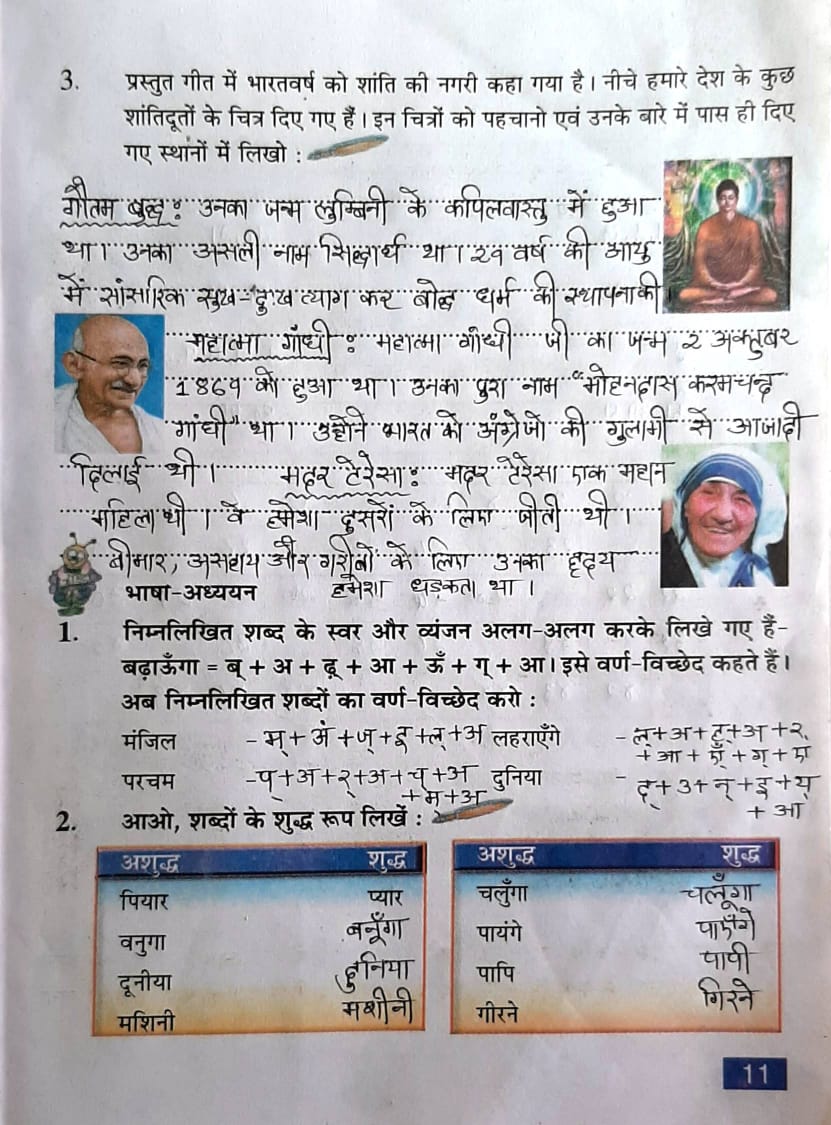 3. प्रस्तुत गीत में भारतवर्ष को शांति की नगरी कहा गया है। नीचे हमारे देश के कुछ
शांतिदूतों के चित्र दिए गए हैं। इन चित्रों को पहचानो एवं उनके बारे में पास ही दिए
गए स्थानों में लिखो :
गौतम बुद्ध : उनका जन्म लुम्बिनी के कपिलवास्तु में हुआ
था। उनका असली नाम सिद्धार्थ था। २९ वर्ष की आयु
में सांसारिक सुख-दुःख त्याग कर बोद्ध धर्म की स्थापना की
महात्मा गांधी : महात्मा गांधी जी का जन्म २ अक्तुबर
1869 को हुआ था। उनका पुरा नाम "मोहनदास करमचन्द
गांधी" था। उहोंने भारत को अंग्रेजो की गुलामी से आजादी
दिलाई थी। मदर टेरेसा : मदर टेरेसा एक महान
महिला थी। वे हमेशा दुसरों के लिए जीती थी।
बीमार, असहाय और गरीबों के लिए उनका हृदय
हमेशा धड़कता था।
भाषा-अध्ययन
1. निम्नलिखित शब्द के स्वर और व्यंजन अलग-अलग करके लिखे गए हैं-
बढ़ाऊँगा = ब् + अ + ढ़् + आ + ऊँ + ग् + आ। इसे वर्ण-विच्छेद कहते हैं।
अब निम्नलिखित शब्दों का वर्ण-विच्छेद करो :
मंजिल - म् + अं + ज् + इ + ल् + अ लहराएँगे - ल् + अ + ह् + अ + र्
+ आ + एँ + ग् + ए
परचम - प् + अ + र् + अ + च् + अ दुनिया - द् + उ + न् + इ + य्
+ म + अ + आ
2. आओ, शब्दों के शुद्ध रूप लिखें :
अशुद्ध शुद्ध अशुद्ध शुद्ध
पियार प्यार चलुँगा चलूँगा
वनुगा बनूँगा पायंगे पाएँगे
दूनीया दुनिया पापि पापी
मशिनी मशीनी गीरने गिरने
11